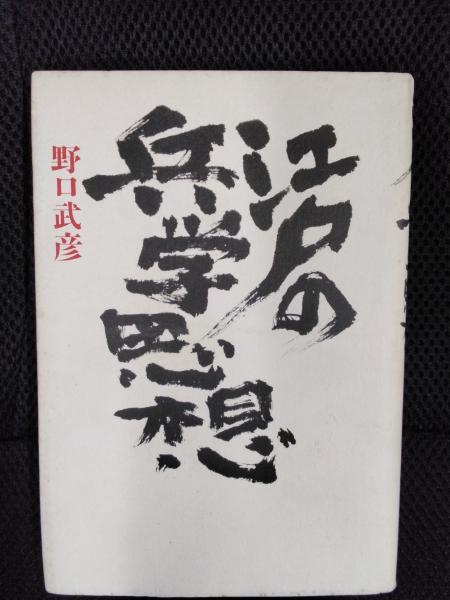 江戸の
兵学思想
野口武彦